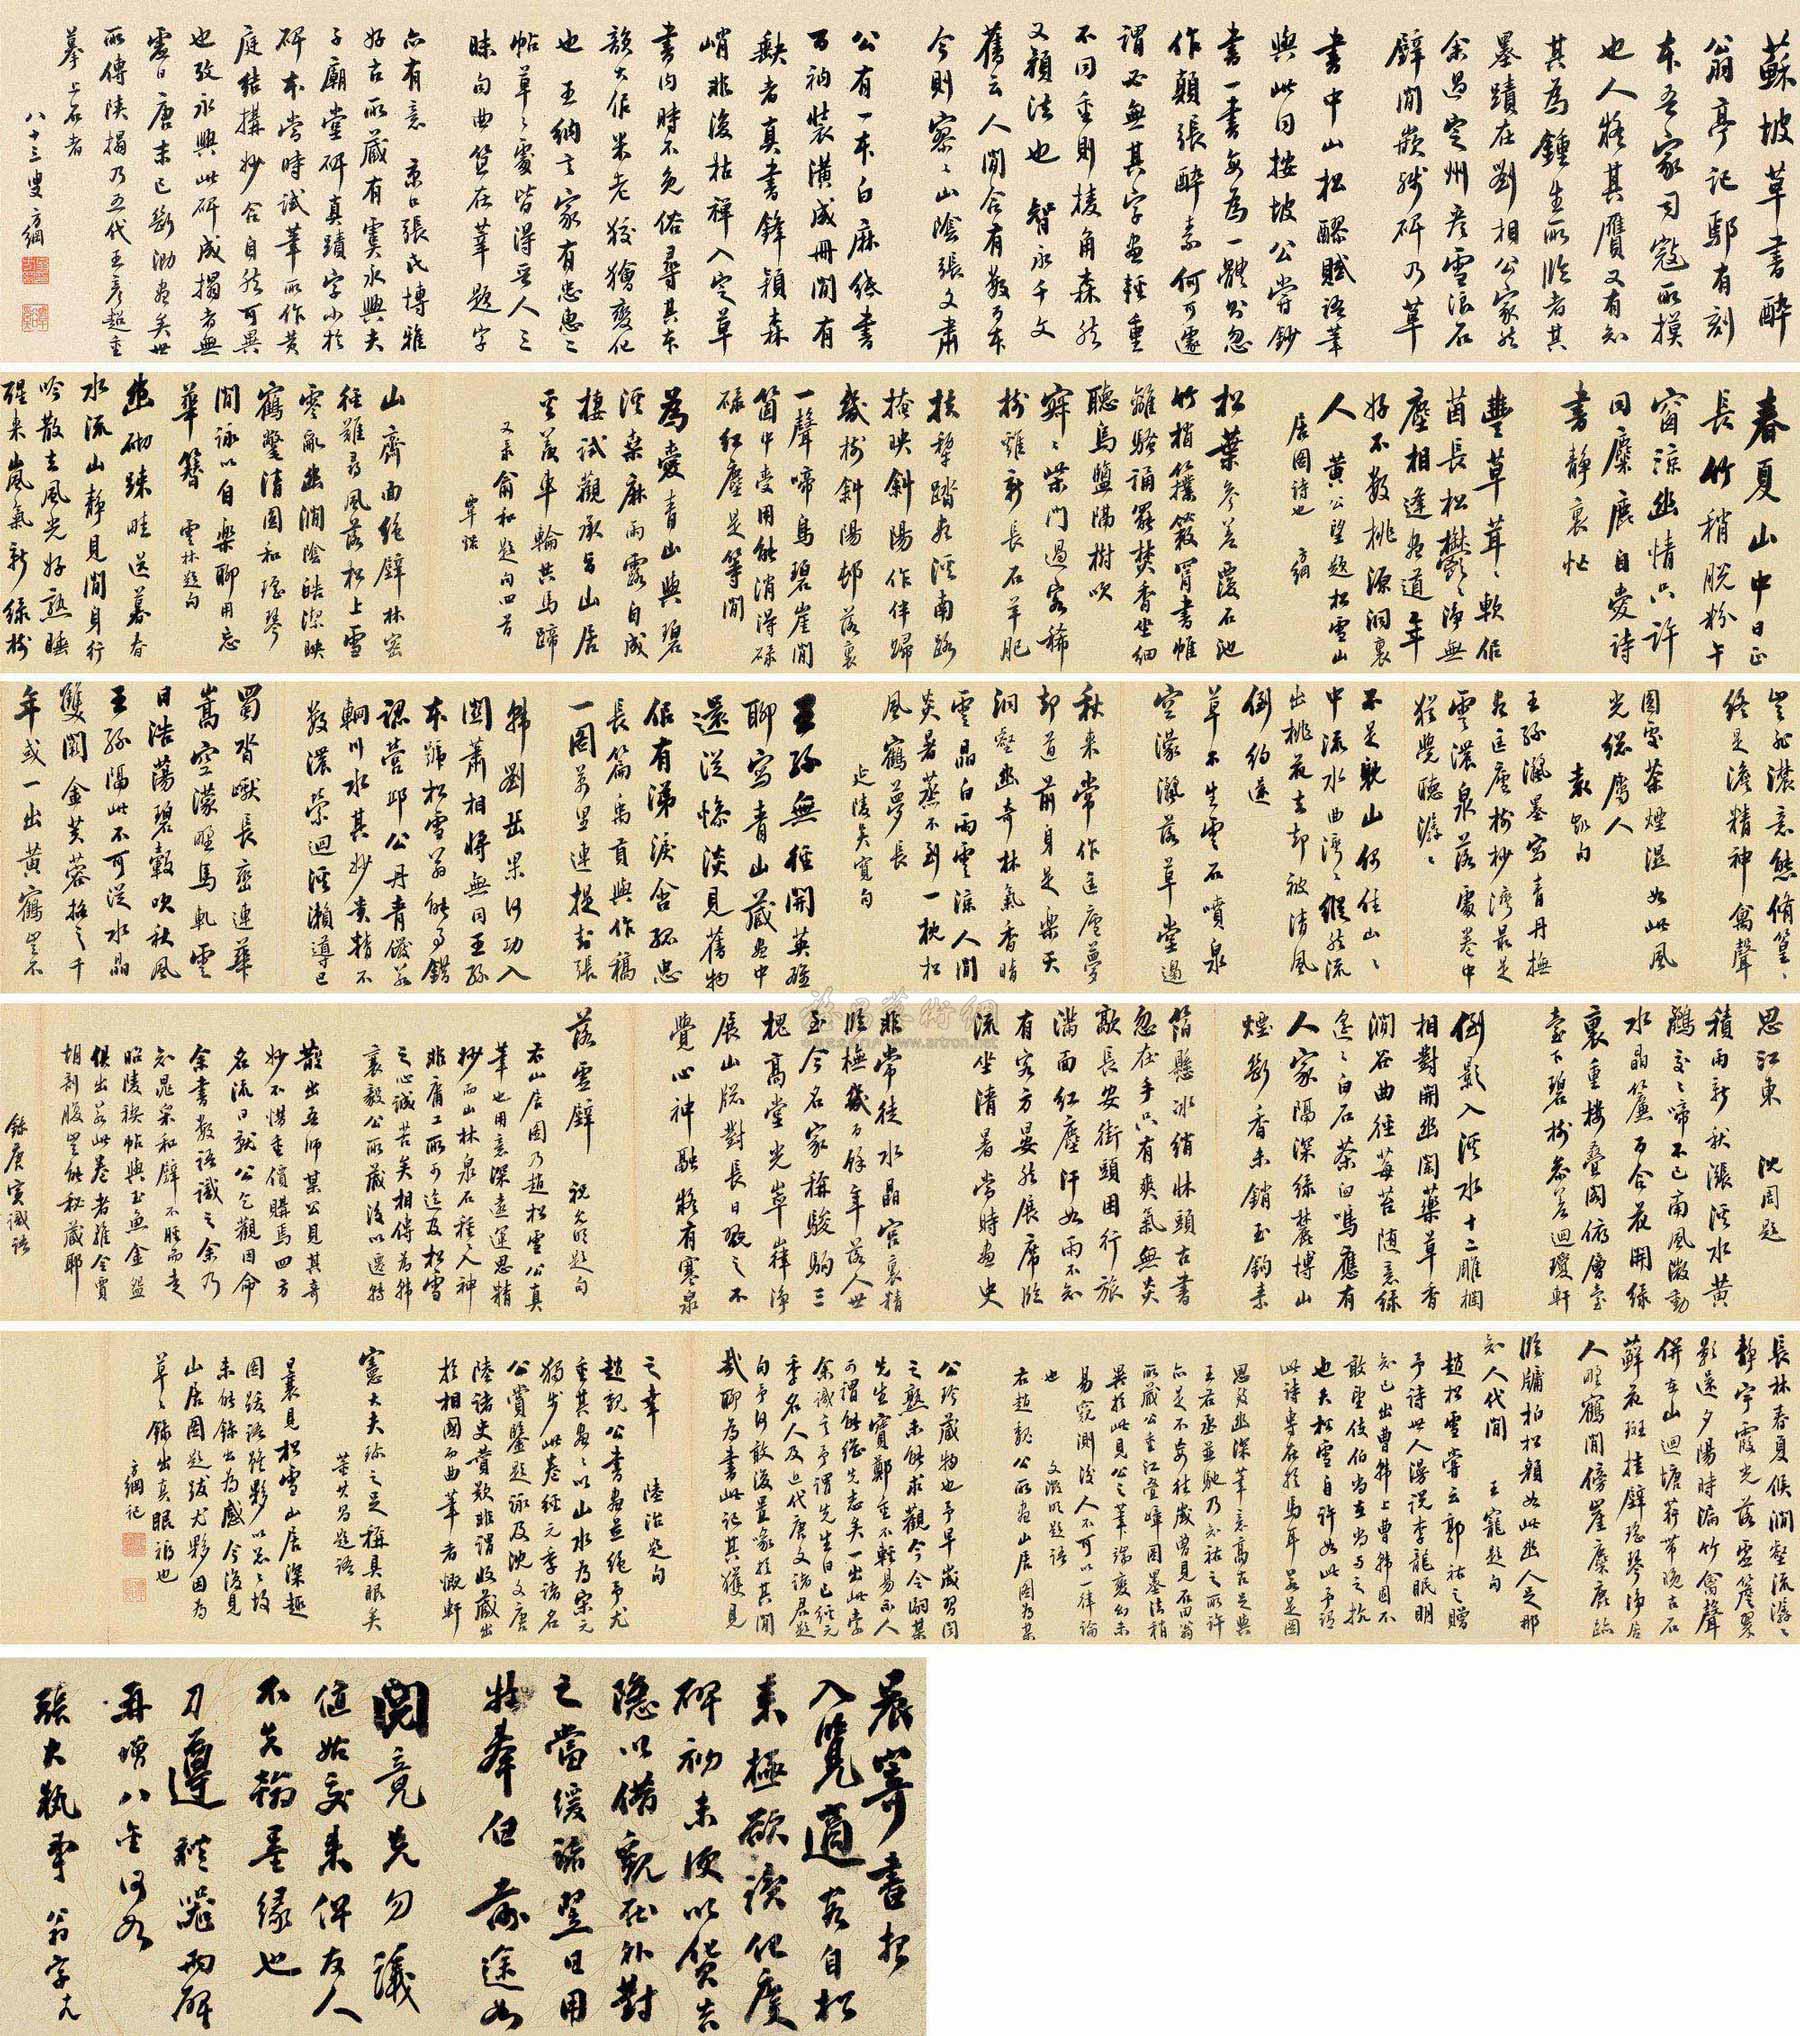 蘇坡草書醉
翁亭記鄢有刻
本吾家司寇所摸
也人稱其贋又有知
其為鍾生所臨者其
墨蹟在劉相公家然
余過定州產雪浪石
壁間嵌殘碑乃草
書中山松醪賦語筆
與此同按坡公嘗鈔
書一書每為一體爾忽
作顛張醉素何可遽
謂必無其字畫輕重
不同重則棱角森然
又穎法也智永千文
舊云人間合有數百本
今則寥寥山陰張文肅
公有一本白麻紙書
百衲裝潢成冊間有
缺者真書鋒穎森
峭非復枯禪入定草
書內時不免俗尋其本
款大似米老狡獪變化
也王納言家有忠惠二
帖草草處皆得晉人三
昧向曲筆在筆題字
亦有意京口張氏博雅
好古所藏有虞永興夫
子廟堂碑真蹟字小於
碑本當時試筆所作黃
庭結構妙合自然可異
也攷永興此碑成搨者無
虛日唐末已斷泐盡矣世
所傳陝搨乃五代王彥超重
摹上石者
八十三叟方綱
春夏山中日正
長竹稍脫粉午
窗涼幽情只許
同麋鹿自愛詩
書靜裏忙
豐草茸茸軟似
茵長松鬱鬱淨無
塵相逢盡道年
好不教桃源洞裏
人黃公望題松雪山
居圖詩也方綱
松葉參差覆石池
竹梢籜簌罥書帷
離騷誦罷焚香坐細
聽烏鹽隔樹吹
寂寂柴門過客稀
樹雞新長石羊肥
扶犁踏盡溪南路
掩映斜陽作伴歸
幾樹斜陽邨落裏
一聲啼鳥碧崖間
箇中受用能消得碌
碌紅塵是等閒
為愛青山與碧
溪桑麻雨露自成
棲試觀承旨山居
景羨車輪共馬蹄
又豪俞和題句四首
覃谿
山齊面絕壁林密
徑難尋風落松上雪
零亂幽澗陰皓潔映
鶴氅清圓和瑤琴
閒詠以自樂聊用忘
華簪雲林題句
幽砌踈畦送暮春
水流山靜見閒身行
吟散去風光好熟睡
醒來嵐氣新綠樹
豈非濃意態脩篁
終是澹精神禽聲
圖雯茶煙濕如此風
光總屬人
袁凱句
王孫潑墨寫青丹撫
盡匡廬樹杪灣最是
雲濃泉落處卷中
猶覺聽潺潺
不是亂山何佳山山
中流水曲灣灣縱然流
出桃花去却被清風
倒約還
草不生雲石噴泉
空濛濕落草堂邊
秋來常作匡廬夢
却道前身是樂天
洞壑幽奇林氣香晴
雲晶白雨雲涼人間
炎暑蒸不到一枕松
風鶴夢長
延陵吳寬句
王孫無恙開英雄
聊寫青山藏畫中
還從慘淡見舊物
似有涕淚含孤忠
長篇禹貢與作稿
一圖萬里連提封張
韓劉岳果何功入
關蕭相將無同王孫
本號松雪翁能事錯
認營邱公丹青儼若
輞川水其妙貴精不
教濃縈迴溪瀨導巴
蜀沓嶂長巒連華
嵩空濛野馬軋雲
日浩蕩碧穀吹秋風
王孫隔此不可從水晶
雙闕金芙蓉撫之千
年或一出黃鶴豈不
思江東沈周題
積雨新秋漲溪水黃
鸝交交啼不已南風微動
水晶簾百合花開綠
裏重樓疊閣俯層臺
臺下碧樹參差迴瓊軒
倒影入溪水十二雕欄
相對開幽闌藥草香
澗谷曲徑莓苔隨意綠
遙遙白石茶臼鳴應有
人家隔深綠麓博山
煙斷香未銷玉鉤素
箔懸冰綃牀頭古書
忽在手只有爽氣無炎
歊長安街頭困行旅
滿面紅塵汗如雨不知
有客方晏然展席臨
流坐清暑當時畫史
非常徒水晶宮裏精
臨橅幾百餘年落人世
至今名家稱駿駒三
槐高堂光崒嵂淨
展山牕對長日翫之不
覺心神融將有寒泉
落虛壁祝允明題句
右山居圖乃趙松雪公真
筆也用意深遠運思精
妙而山林泉石種種入神
非庸工所可追及松雪
之心誠苦矣相傳為韓
襄毅公所藏後以遷轉
散出吾師某公見其奇
妙不惜重價購焉四方
名流日就公乞觀因命
余書數語識之余乃
知晁宋和璧不脛而走
昭陵禊帖與玉魚金盌
俱出若此卷者雖令賈
胡剖腹豈能秘藏耶
錄唐寅識語
長林春夏候澗壑流潺潺
靜宇霞光落虛簷翠
影遠夕陽時漏竹禽聲
併在山迴塘荇帶晚古石
蘚花斑挂壁瑤琴淨居
人野鶴閒傍崖麋鹿跡
臨牖柏松顏如此幽人足那
知人代間王寵題句
趙松雪嘗云郭祐之贈
予詩世人漫說李龍眠明
知已出曹韓上曹韓固不
敢望使伯當在當與之抗
也夫松雪自許如此予謂
此詩專在於馬耳若是圖
思致幽深筆意高古足與
王右丞並馳乃知祐之所許
亦足不妄往歲曾見石田翁
所藏公重江疊嶂圖墨法稍
異於此見公之筆端變幻未
易窺測後人不可以一律論
也文徵明題語
右趙魏公所畫山居圖為某
公珍藏物也予早歲習聞
之熟未能求觀今令嗣某
先生寶鄭重不輕易示人
可謂能繼先志矣一出此索
余識之予謂先生曰已經元
季名人及近代唐文諸君題
句予何敢復置喙於其間
哉聊為書此記其獲見
之幸陸治題句
趙魏公書畫並絕予尤
重其畫畫以山水為宋元
獨步此卷經元季諸名
公賞鑒題詠及沈文唐
陸諸史贊歎非謂收藏出
於相國而曲筆者慨軒
憲大夫珍之足稱具眼矣
董其昌題語
曩見松雪山居深趣
圖跋語雖夥以忽忽故
未能錄出為感今復見
山居圖題跋尤夥因為
草草錄出真眼福也
方綱記
晨寄書想
入覽適蒼自松
來極欲讀化度
碑初未便以價告
隱以借觀在外對
之當緩諒翌日用
牡奉但前途如
問竟先勿議
值姑交來俾友人
不失翰墨緣也
刀遵禮器兩碑
再增八金何如
張大執事翁字九